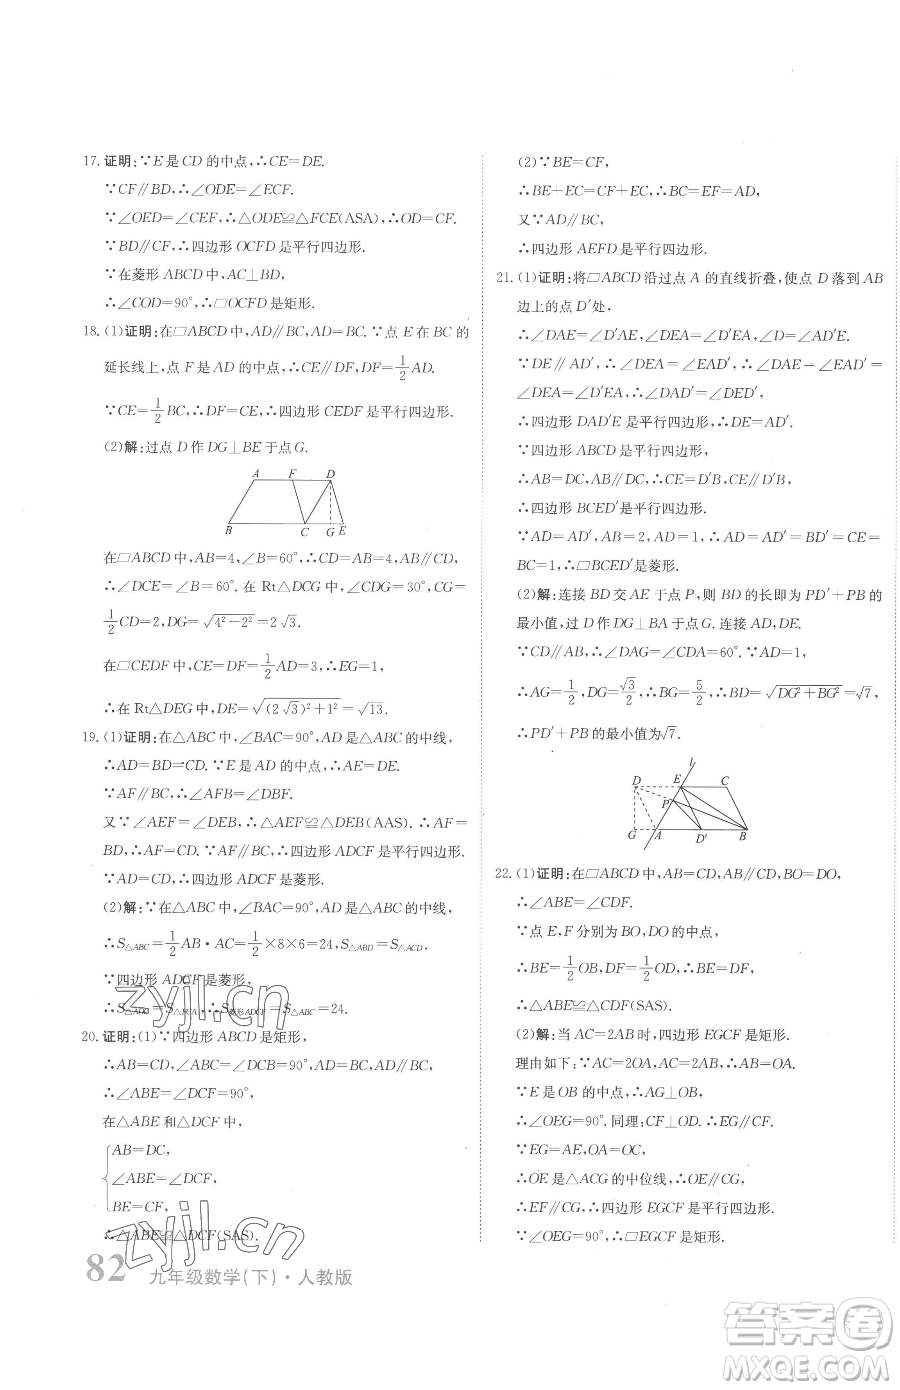 17. 证明:∵E是CD的中点,∴CE=DE.
∵CF∥BD,∴∠ODE=∠ECF.
∵∠OED=∠CEF,∴△ODE≌△FCE(ASA),∴OD=CF.
∵BD∥CF,∴四边形OCFD是平行四边形.
∵在菱形ABCD中,AC⊥BD,
∴∠COD=90°,∴□OCFD是矩形.
18. (1)证明:在□ABCD中,AD∥BC,AD=BC.∵点E在BC的
延长线上,点F是AD的中点,∴CE∥DF,DF=1/2AD.
∵CE=1/2BC,∴CE=DF,∴四边形CEDF是平行四边形.
(2)解:过点D作DG⊥BE于点G.
A F D
B C G E
在□ABCD中,AB=4,∠B=60°,∴CD=AB=4,AB∥CD,
∴∠DCE=∠B=60°.在Rt△DCG中,∠CDG=30°,CG=
1/2CD=2,DG=√(4²-2²)=2√3.
在□CEDF中,CE=DF=1/2AD=3,∴EG=1,
∴在Rt△DEG中,DE=√((2√3)²+1²)=√13.
19. (1)证明:在△ABC中,∠BAC=90°,AD是△ABC的中线,
∴AD=BD=CD.∵E是AD的中点,∴AE=DE.
∵AF∥BC,∴∠AFE=∠DBE.
又∵∠AEF=∠DEB,∴△AEF≌△DEB(AAS).∴AF=
BD,∴AF=DC.∵AF∥BC,∴四边形ADCF是平行四边形.
∵AD=CD,∴四边形ADCF是菱形.
(2)解:∵在△ABC中,∠BAC=90°,AD是△ABC的中线,
∴S△ABC=1/2AB·AC=1/2×8×6=24,S△ABD=S△ACD.
∵四边形ADCF是菱形,
=S△ABC=24.
20. 证明:(1)∵四边形ABCD是矩形,
∴AB=CD,∠ABC=∠DCB=90°,
∴∠ABE=∠DCF=90°,
在△ABE和△DCF中,
AB=DC,
∠ABE=∠DCF,
BE=CF,
∴△ABE≌△DCF(SAS).
82 九年级数学(下)·人教版
(2)∵BE=CF,
∴BE+EC=CF+EC,∴BC=EF=AD,
又∵AD∥BC,
∴四边形AEFD是平行四边形.
21. (1)证明:将□ABCD沿过点A的直线折叠,使点D落到AB
边上的点D′处,
∴∠DAE=∠D′AE,∠DEA=∠D′EA,∠D=∠AD′E.
∵DE∥AD′,∴∠DEA=∠EAD′,∴∠DAE=∠EAD′=
∠DEA=∠D′EA,∴∠DAD′=∠DED′.
∴四边形DAD′E是平行四边形,∴DE=AD′.
∵四边形ABCD是平行四边形,
∴AB=DC,AB∥DC,∴CE=D′B,CE∥D′B,
∴四边形BCED′是平行四边形.
∵AD=AD′,AB=2,AD=1,∴AD=AD′=BD′=CE=
BC=1,∴□BCED′是菱形.
(2)解:连接BD交AE于点P,则BD的长即为PD′+PB的
最小值,过D作DG⊥BA于点G.连接AD,DE.
∵CD∥AB,∴∠DAG=∠CDA=60°.
∴AG=1/2,DG=√3/2,∴BG=5/2,∴BD=√(DG²+BG²)=√7,
∴PD′+PB的最小值为√7.
l
D E C
P
G A D′ B
22. (1)证明:在□ABCD中,AB=CD,AB∥CD,BO=DO,
∴∠ABE=∠CDF.
∵点E,F分别为BO,DO的中点,
∴BE=1/2OB,DF=1/2OD,∴BE=DF,
∴△ABE≌△CDF(SAS).
(2)解:当AC=2AB时,四边形EGCF是矩形.
理由如下:∵AC=2OA,AC=2AB,∴AB=OA.
∵E是OB的中点,∴AG⊥OB.
∴∠OEG=90°.同理:CF⊥OD.∴EG∥CF.
∵EG=AE,OA=OC,
∴OE是△ACG的中位线,∴OE∥CG,
∴EF∥CG,∴四边形EGCF是平行四边形.
∵∠OEG=90°,∴四边形EGCF是矩形.
zyjl.cn
zyjl.cn
答案圈
MXQE.COM